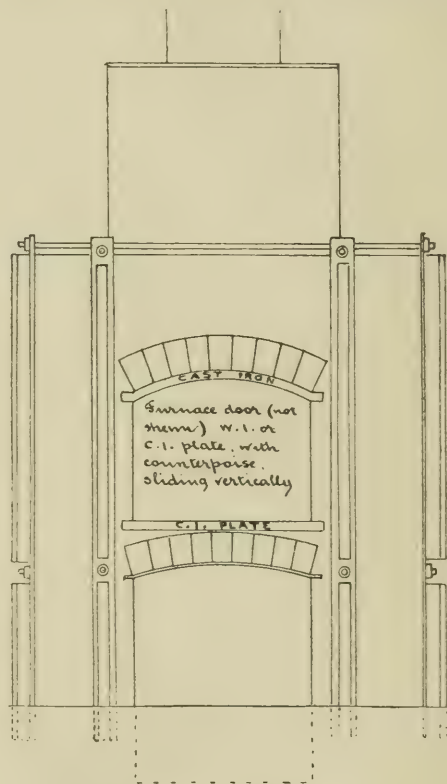 CAST IRON
Furnace door (not
shewn) W.I. or
C.I. plate, with
counterpoise,
sliding vertically
C.I. PLATE